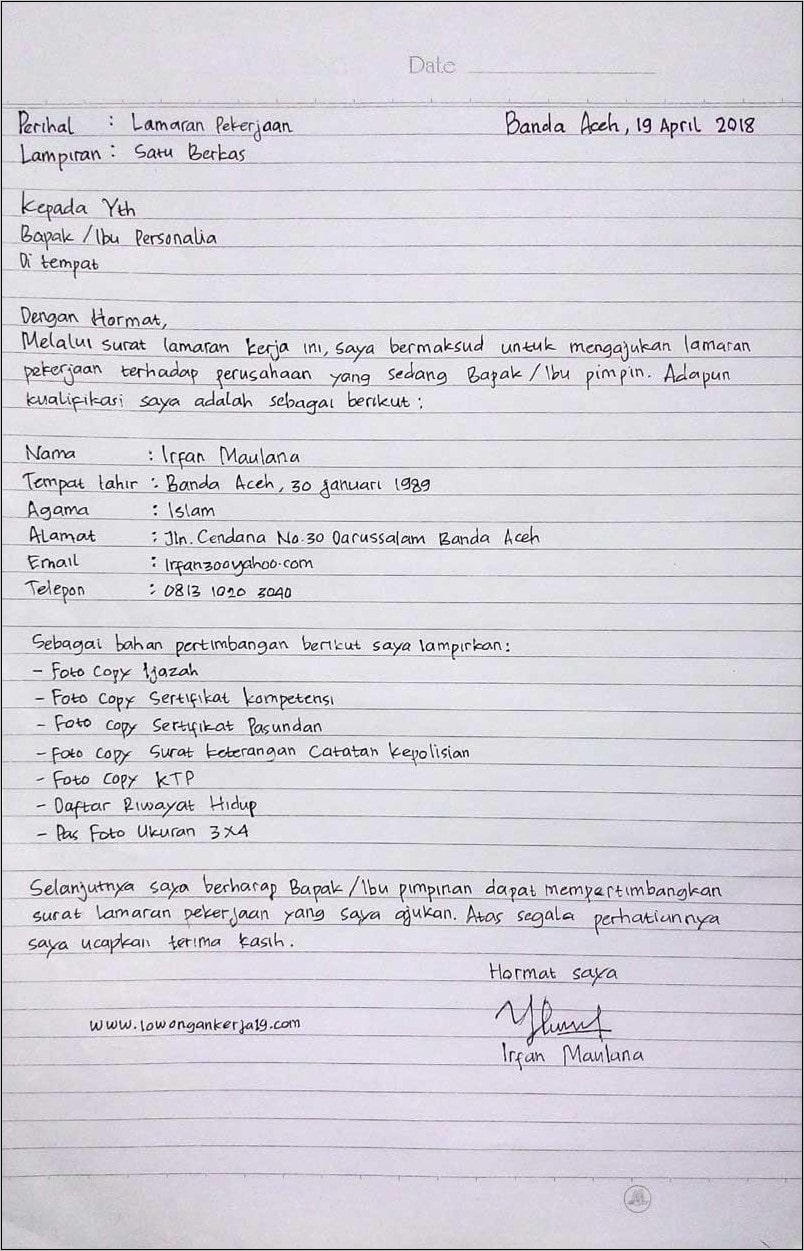 Date
Perihal : Lamaran Pekerjaan Banda Aceh, 19 April 2018
Lampiran : Satu Berkas
Kepada Yth
Bapak /Ibu Personalia
Di tempat
Dengan Hormat,
Melalui surat lamaran kerja ini, saya bermaksud untuk mengajukan lamaran
pekerjaan terhadap perusahaan yang sedang Bapak /Ibu pimpin. Adapun
kualifikasi saya adalah sebagai berikut :
Nama : Irfan Maulana
Tempat lahir : Banda Aceh, 30 Januari 1989
Agama : Islam
Alamat : Jln. Cendana No.30 Darussalam Banda Aceh
Email : Irfan300yahoo.com
Telepon : 0813 1020 3040
Sebagai bahan pertimbangan berikut saya lampirkan:
- Foto Copy Ijazah
- Foto Copy Sertifikat Kompetensi
- Foto Copy Sertifikat Pasundan
- Foto Copy Surat Keterangan Catatan Kepolisian
- Foto Copy KTP
- Daftar Riwayat Hidup
- Pas Foto Ukuran 3x4
Selanjutnya saya berharap Bapak /Ibu pimpinan dapat mempertimbangkan
surat lamaran pekerjaan yang saya ajukan. Atas segala perhatiannya
saya ucapkan terima kasih.
Hormat saya
www.lowongankerja19.com
Irfan Maulana